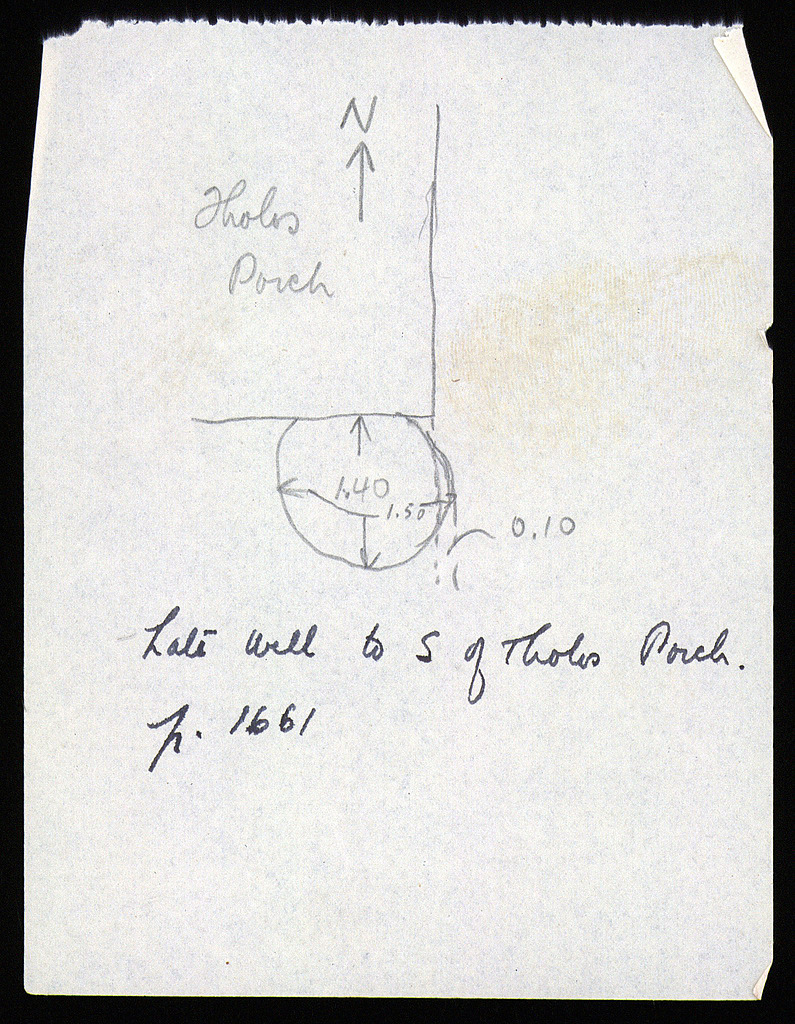 N
Tholos
Porch
1.40
1.50
0.10
Late well to S of Tholos Porch.
p. 1661